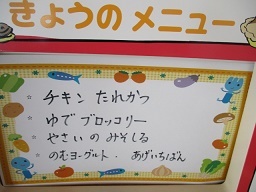 きょうの メニュー
☆ チキン たれかつ
☆ ゆで ブロッコリー
☆ やさいの みそしる
☆ のむヨーグルト ・ あげいちばん